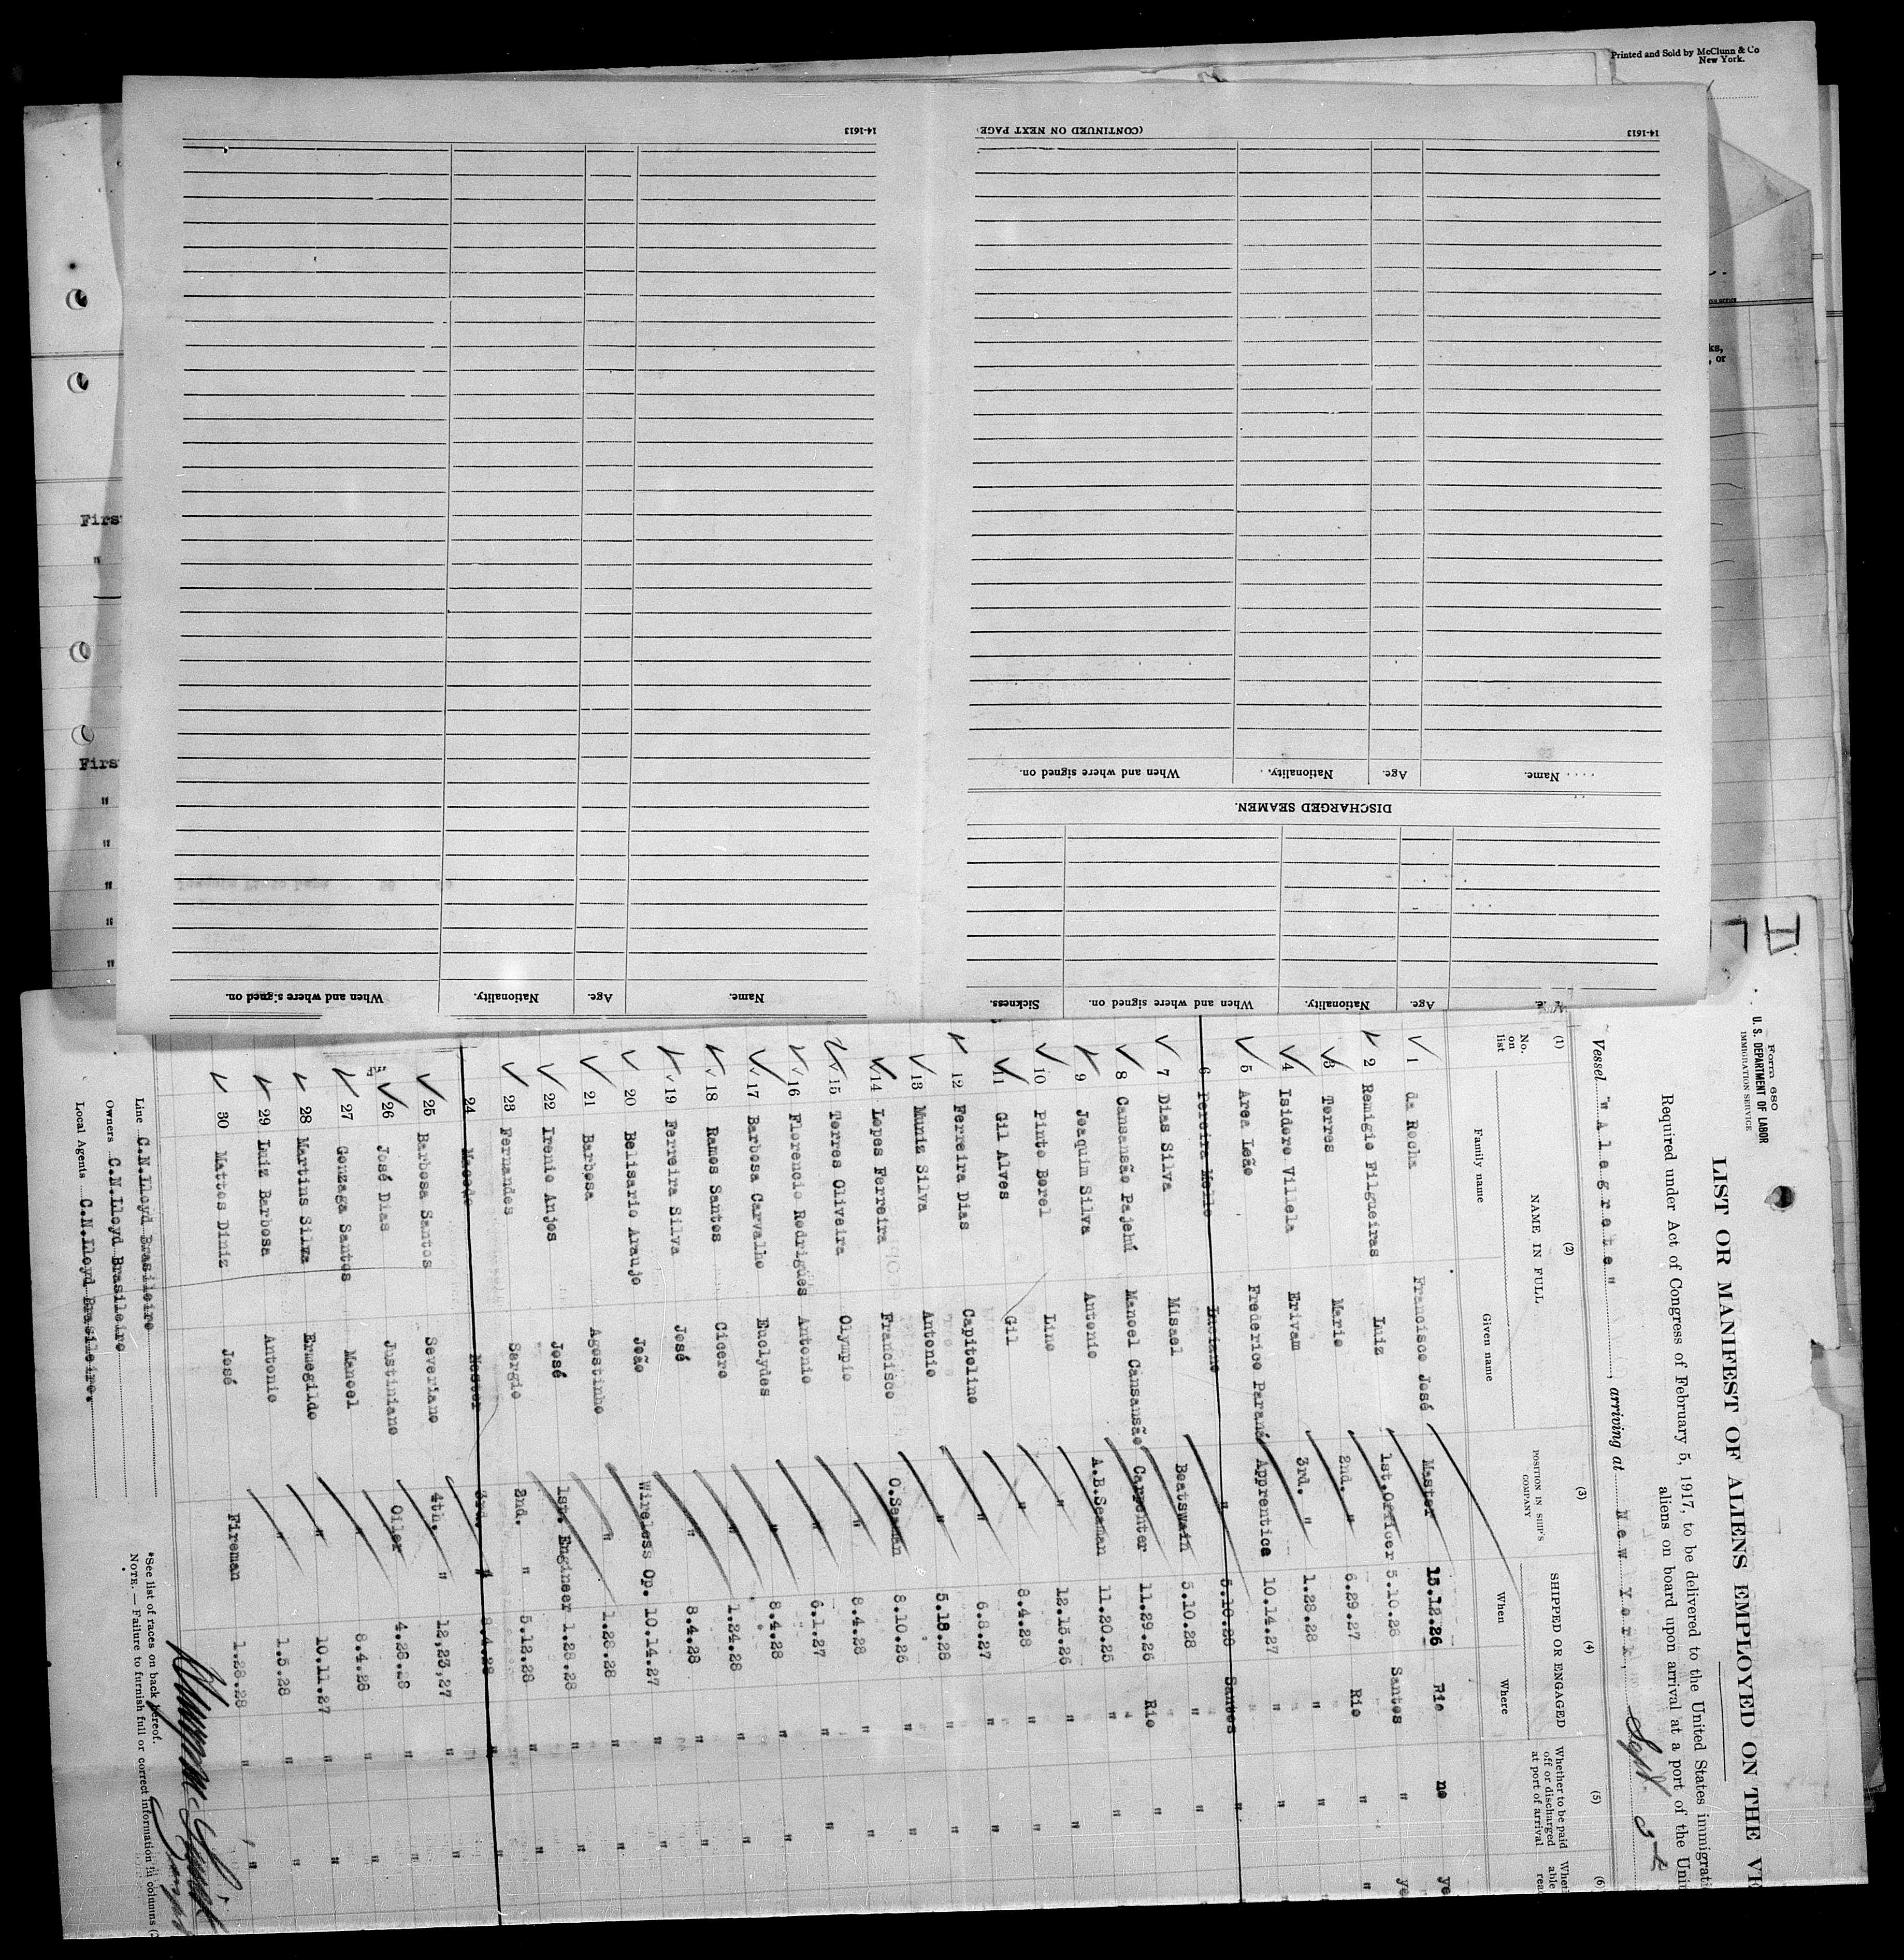 Printed and Sold by McClunn & Co
New York.
14-1613
(CONTINUED ON NEXT PAGE)
14-1613
Name. Age. Nationality. When and where signed on.
DISCHARGED SEAMEN.
Age. Nationality. When and where signed on. Sickness.
Name. Age. Nationality. When and where signed on.
ks,
, or
Firs
"
Firs
"
"
"
"
"
Form 680
U. S. DEPARTMENT OF LABOR
IMMIGRATION SERVICE
LIST OR MANIFEST OF ALIENS EMPLOYED ON THE VE
Required under Act of Congress of February 5, 1917, to be delivered to the United States immigrati
aliens on board upon arrival at a port of the Uni
Vessel "Alegrete", arriving at New York, Sept
(1) (2) (3) (4) (5) (6)
No. on list NAME IN FULL POSITION IN SHIP'S COMPANY SHIPPED OR ENGAGED Whether to be paid off or discharged at port of arrival Whet able rea
Family name Given name When Where
1 da Rocha Francisco José Master 15.12.26 Rio no ye
2 Remigio Filgueiras Luiz 1st.Officer 5.10.28 Santos " ye
3 Torres Mario 2nd. " 6.29.27 Rio " "
4 Isidoro Villela Erivam 3rd. " 1.28.28 " "
5 Area Leão Frederico Paraná Apprentice 10.14.27 " "
6 Pereira Mello Luciano " 5.10.28 Santos "
7 Dias Silva Misael Boatswain 5.10.28 " "
8 Cansansão Pajehú Manoel Cansansão Carpenter 11.29.26 Rio "
9 Joaquim Silva Antonio A.B.Seaman 11.20.25 " "
10 Pinto Borel Lino " 12.15.26 " "
11 Gil Alves Gil " 8.4.28 " "
12 Ferreira Dias Capitolino " 6.8.27 " "
13 Muniz Silva Antonio " 5.18.28 " "
14 Lopes Ferreira Francisco O.Seaman 8.10.26 " "
15 Torres Oliveira Olympio " 8.4.28 " "
16 Florencio Rodrigues Antonio " 6.1.27 " "
17 Barbosa Carvalho Euclydes " 8.4.28 " "
18 Ramos Santos Cicero " 1.24.28 " "
19 Ferreira Silva José " 8.4.28 " "
20 Belisario Araujo João Wireless Op. 10.14.27 " "
21 Barbosa Agostinho " 1.28.28 " "
22 Irenio Anjos José 1st. Engineer 1.28.28 " "
23 Fernandes Sergio 2nd. " 5.12.28 " "
24 Macedo Nestor 3rd. " 8.4.28 " "
25 Barbosa Santos Severiano 4th. " 12,23,27 " "
26 José Dias Justiniano Oiler 4.28.28 " "
27 Gonzaga Santos Manoel " 8.4.28 " "
28 Martins Silva Ermegildo " 10.11.27 " "
29 Luiz Barbosa Antonio " 1.5.28 " "
30 Mattos Diniz José Fireman 1.28.28 " "
Line C.N.Lloyd Brasileiro
Owners C.N.Lloyd Brasileiro
Local Agents C.N.Lloyd Brasileiro.
*See list of races on back hereof.
NOTE.—Failure to furnish full or correct information in columns (